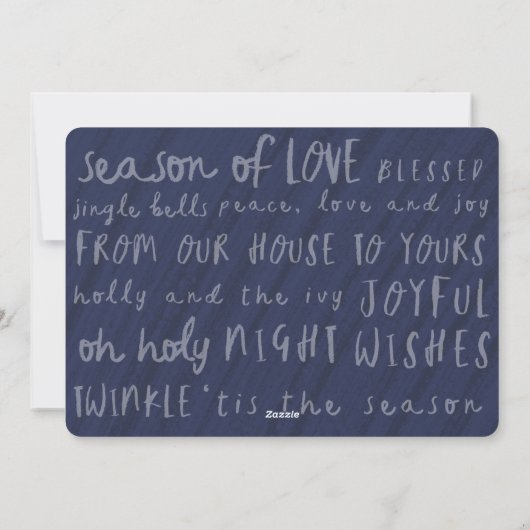 season of LOVE BLESSED
jingle bells peace, love and joy
FROM OUR HOUSE TO YOURS
holly and the ivy JOYFUL
oh holy NIGHT WISHES
TWINKLE 'tis the season
Zazzle